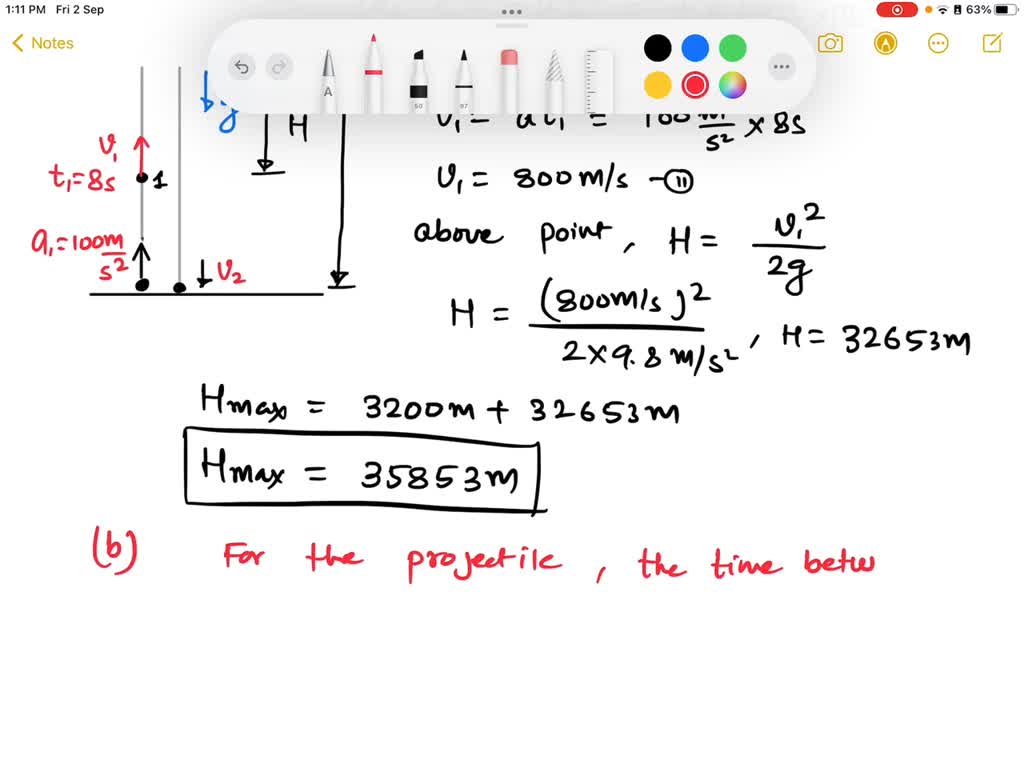 1:11 PM Fri 2 Sep
63%
Notes
A
50
97
g
H
= 100 m/s² × 8s
v₁
t₁=8s
1
v₁ = 800m/s -(11)
a₁=100m/s²
v₂
above point, H = v₁²/2g
H = (800m/s)²/2×9.8m/s² , H = 32653m
Hmax = 3200m + 32653m
Hmax = 35853m
(b) For the projectile, the time betw